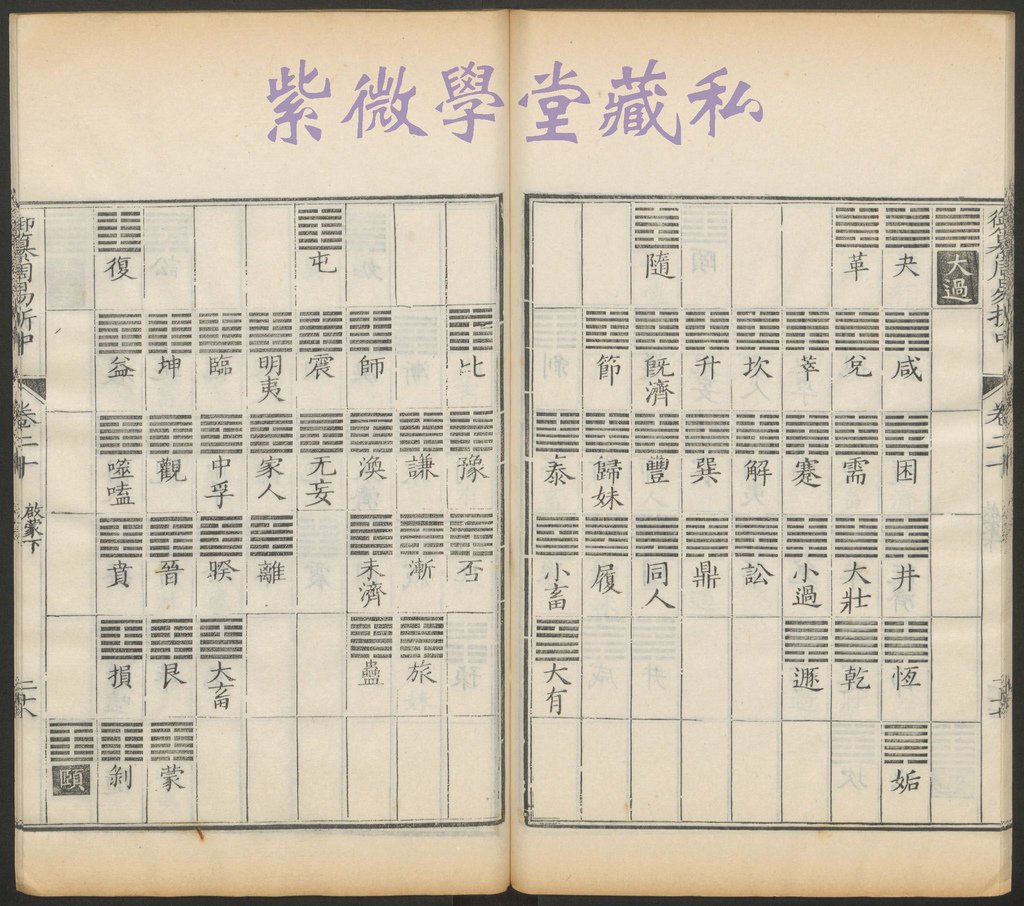 紫微學堂藏私
御纂周易折中 卷二十
大過
夬 咸 困 井 恆 姤
革 兌 需 大壯 乾
萃 蹇 小過 遯
坎 解 訟
升 巽 鼎
隨 旣濟 豐 同人
節 歸妹 履
泰 小畜 大有
比 豫 否
謙 漸 旅
師 渙 未濟 蠱
屯 震 无妄
明夷 家人 離
臨 中孚 睽 大畜
坤 觀 晉 艮 蒙
復 益 噬嗑 賁 損 剝
頤
御纂周易折中 卷二十 啟蒙下 二十八